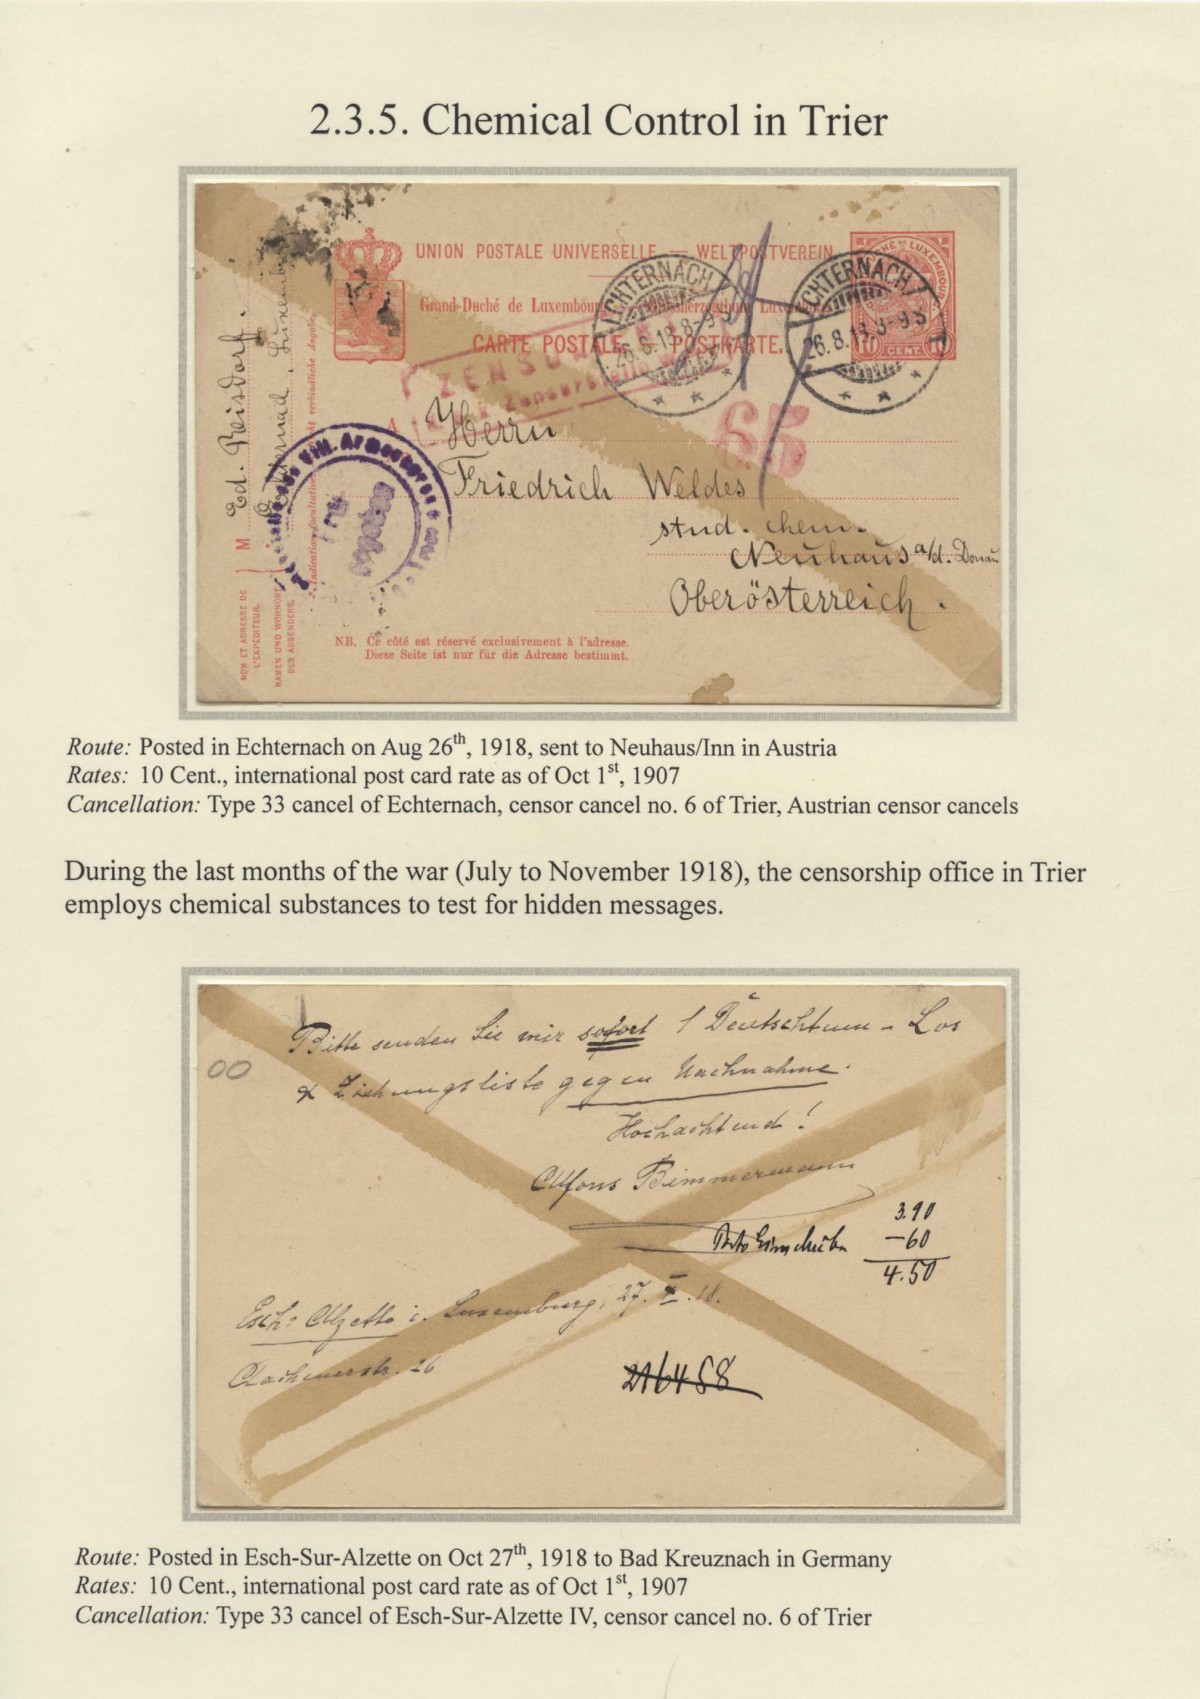 2.3.5. Chemical Control in Trier
UNION POSTALE UNIVERSELLE. — WELTPOSTVEREIN.
Grand-Duché de Luxembourg Luxemburg
CARTE POSTALE — POSTKARTE.
10 CENT. 10
ECHTERNACH
26.8.18.8-9S
ECHTERNACH
26.8.18.8-9S
ZENSURIERT
65
A
Herrn
Friedrich Weldes
stud. chem.
Neuhaus a/d. Donau
Oberösterreich.
M Ed. Reisdorf.
NOM ET ADRESSE DE
L'EXPÉDITEUR.
NAMEN UND WOHNORT
DES ABSENDERS.
NB. Ce côté est réservé exclusivement à l'adresse.
Diese Seite ist nur für die Adresse bestimmt.
Route: Posted in Echternach on Aug 26th, 1918, sent to Neuhaus/Inn in Austria
Rates: 10 Cent., international post card rate as of Oct 1st, 1907
Cancellation: Type 33 cancel of Echternach, censor cancel no. 6 of Trier, Austrian censor cancels
During the last months of the war (July to November 1918), the censorship office in Trier
employs chemical substances to test for hidden messages.
Bitte senden Sie mir sofort 1 Deutschtum - Los
& Ziehungsliste gegen Nachnahme.
Hochachtend!
Alfons Bimmermann
3.90
Porto Einschreiben -60
4.50
Esch-Alzette i. Luxemburg, 27. X. 18.
Aachenerstr. 26
216458
00
Route: Posted in Esch-Sur-Alzette on Oct 27th, 1918 to Bad Kreuznach in Germany
Rates: 10 Cent., international post card rate as of Oct 1st, 1907
Cancellation: Type 33 cancel of Esch-Sur-Alzette IV, censor cancel no. 6 of Trier